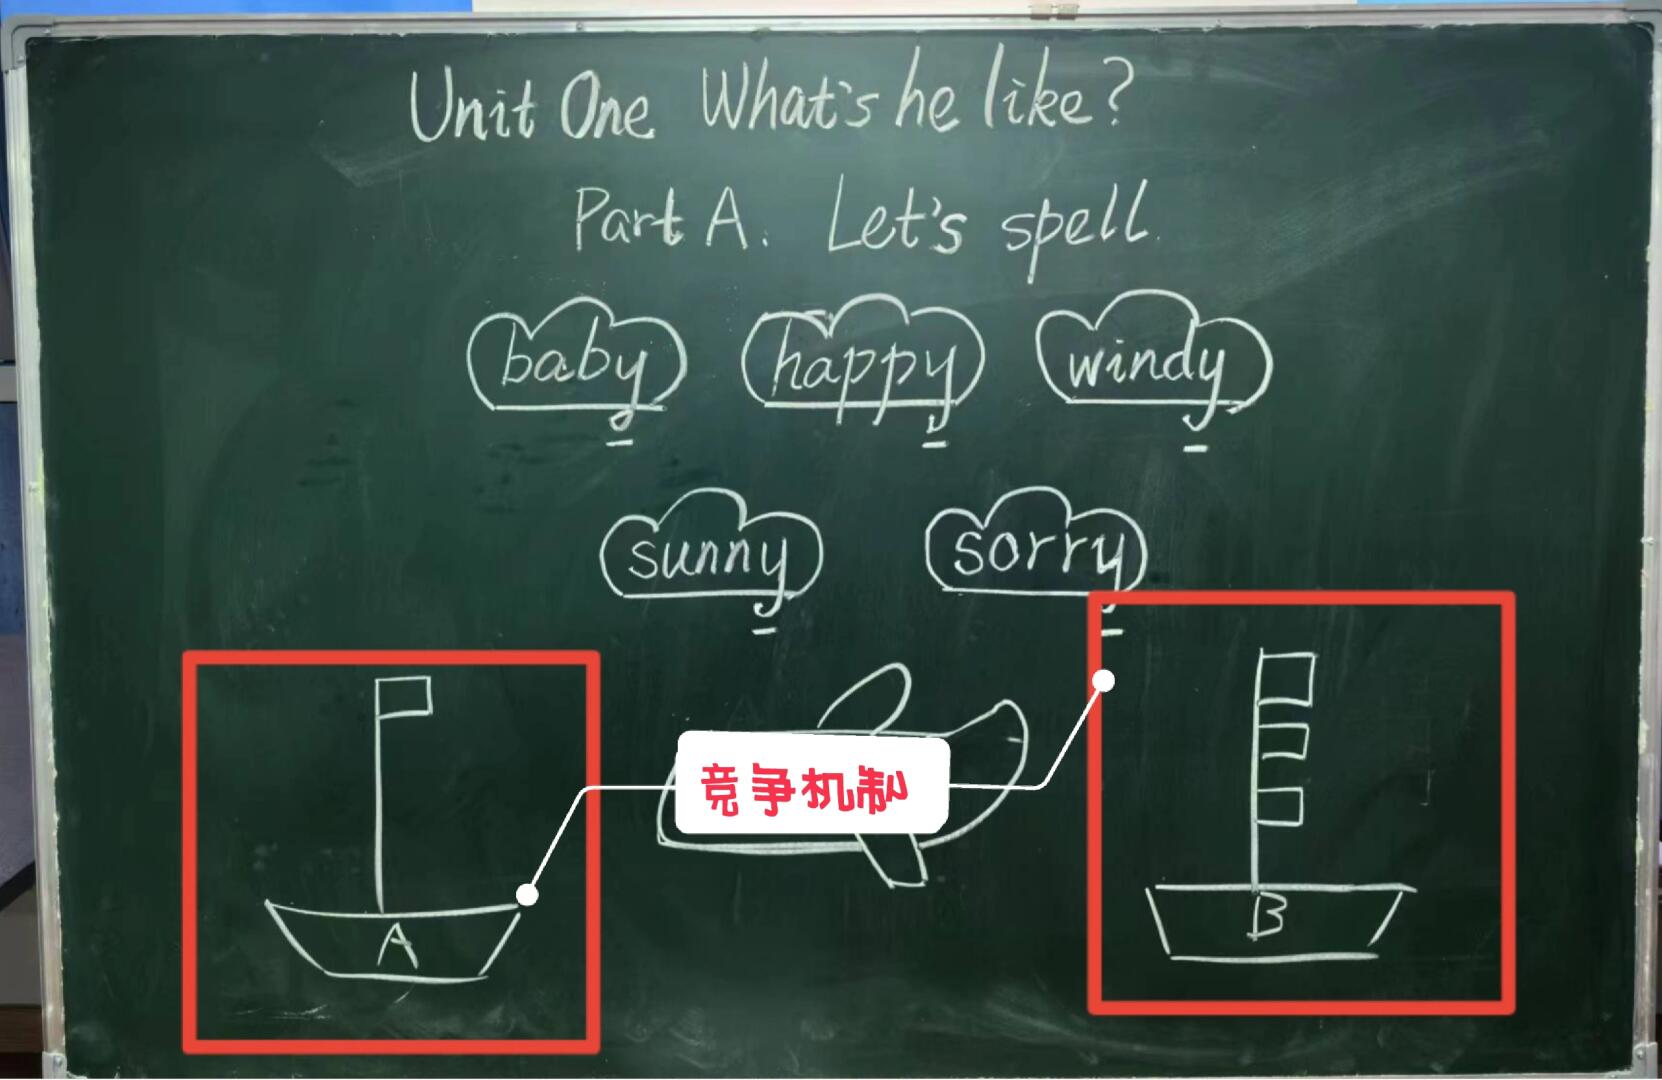 Unit One What's he like?
Part A. Let's spell.
baby happy windy
sunny sorry
竞争机制
A B